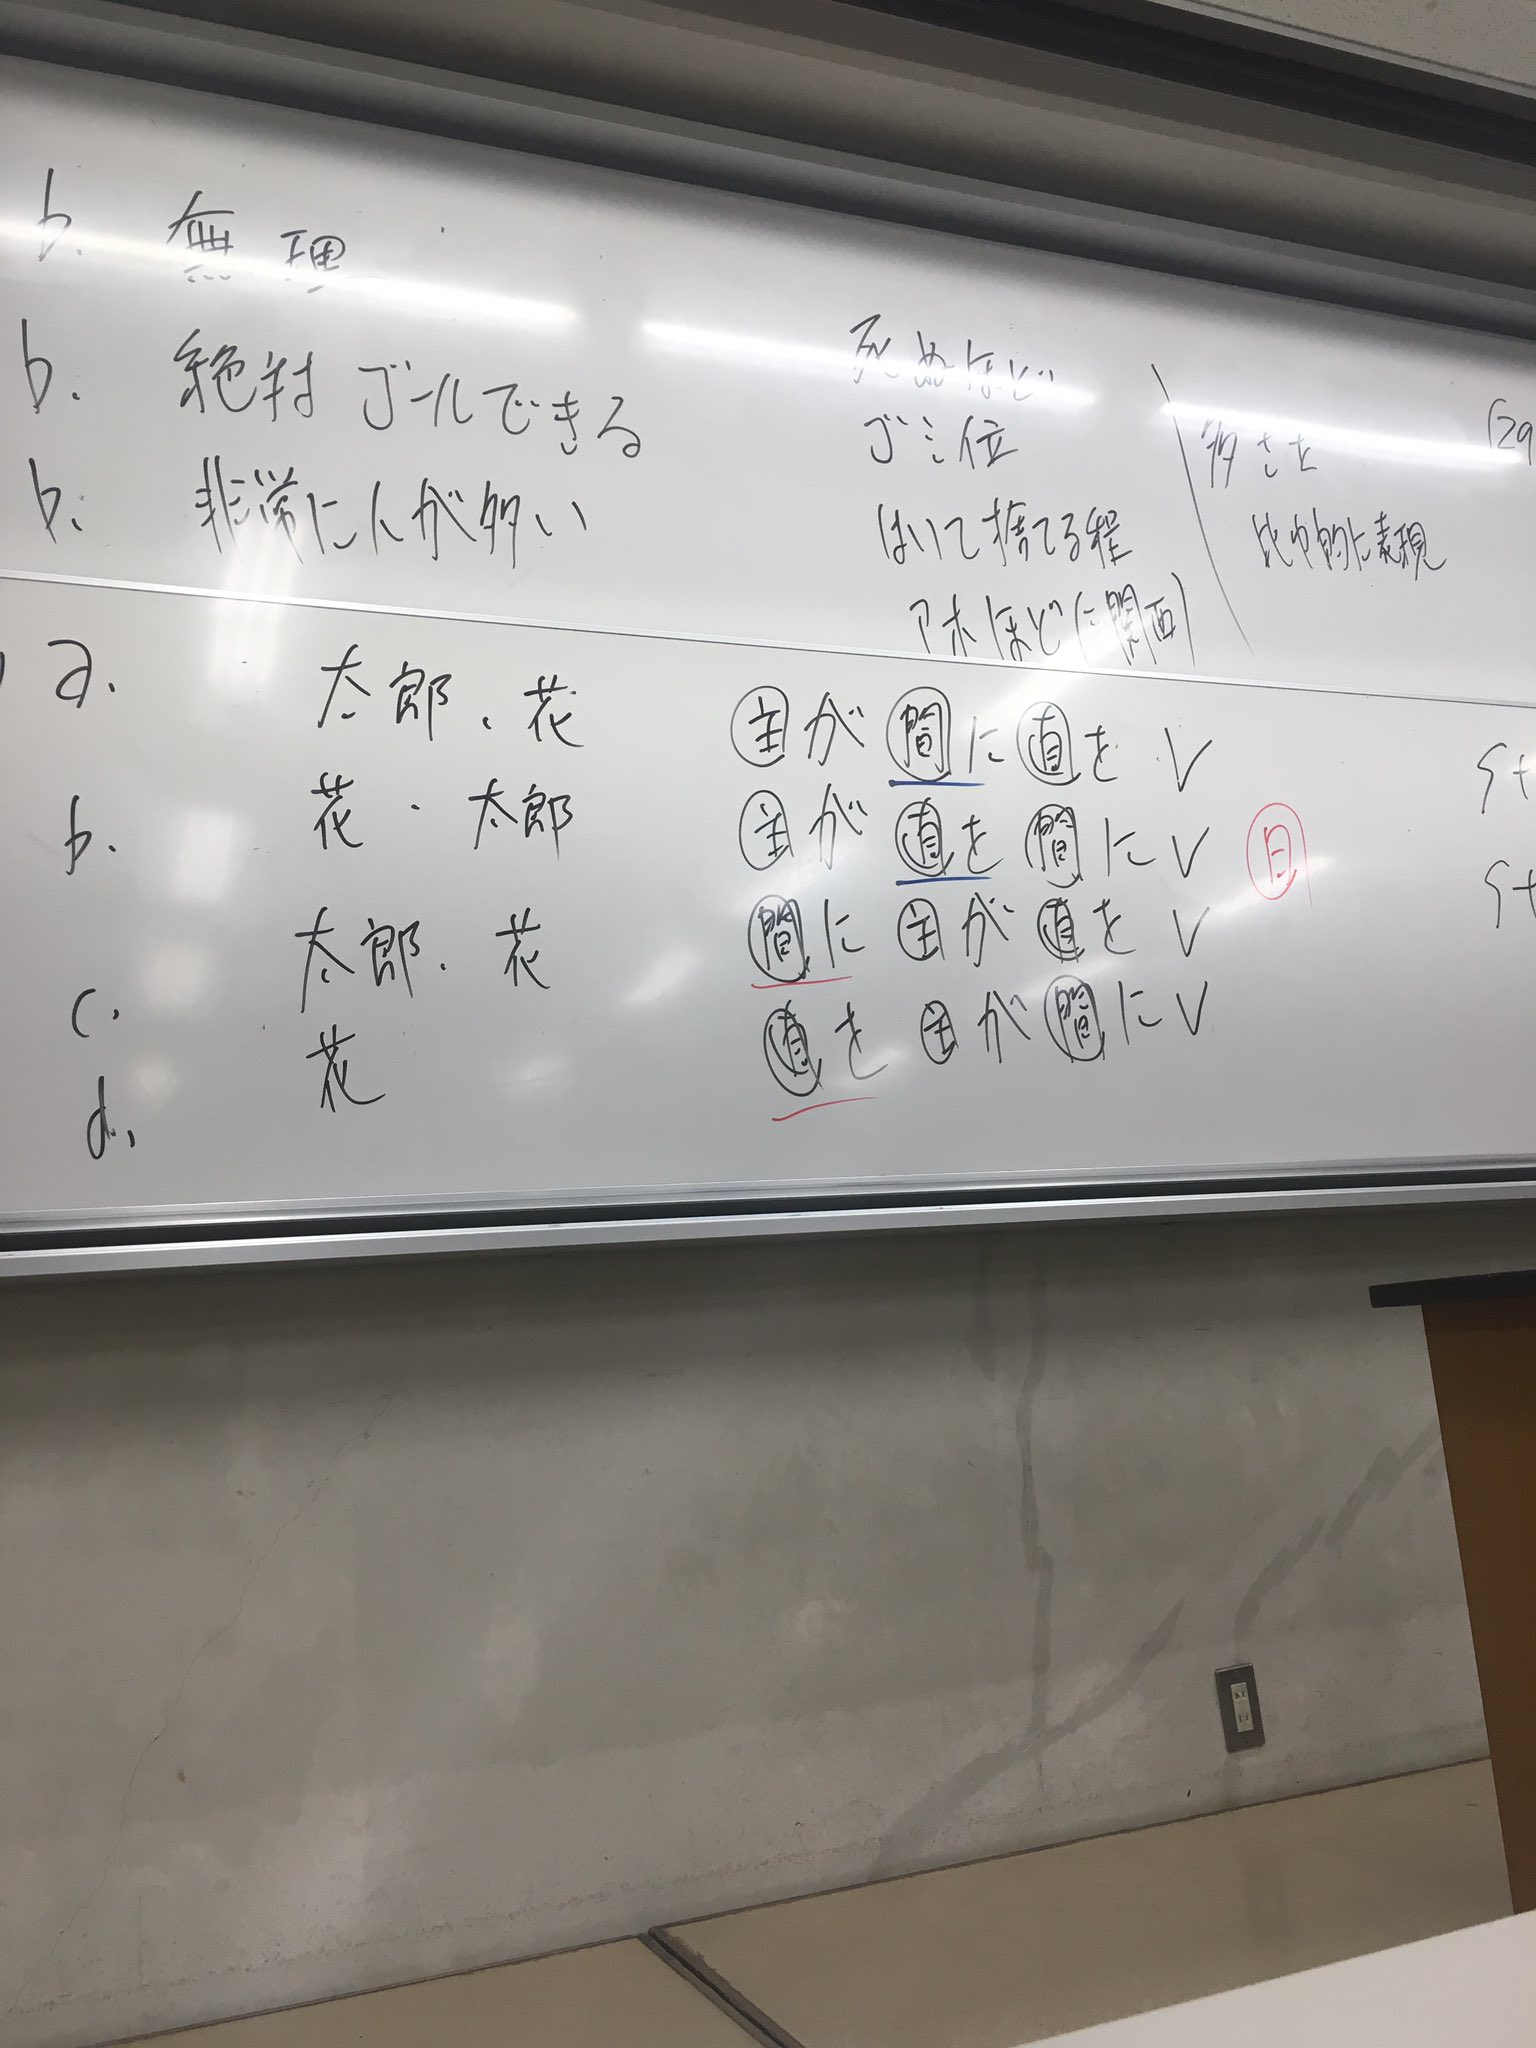 b. 無理
b. 絶対ゴールできる
b. 非常に人が多い
死ぬほど
ゴミ位
はいて捨てる程
アホほどに関西
多さを
比ゆ的に表現
(29
a. 太郎、花 主が間に直をV
b. 花・太郎 主が直を間にV 日
c. 太郎、花 間に主が直をV
d. 花 直を主が間にV